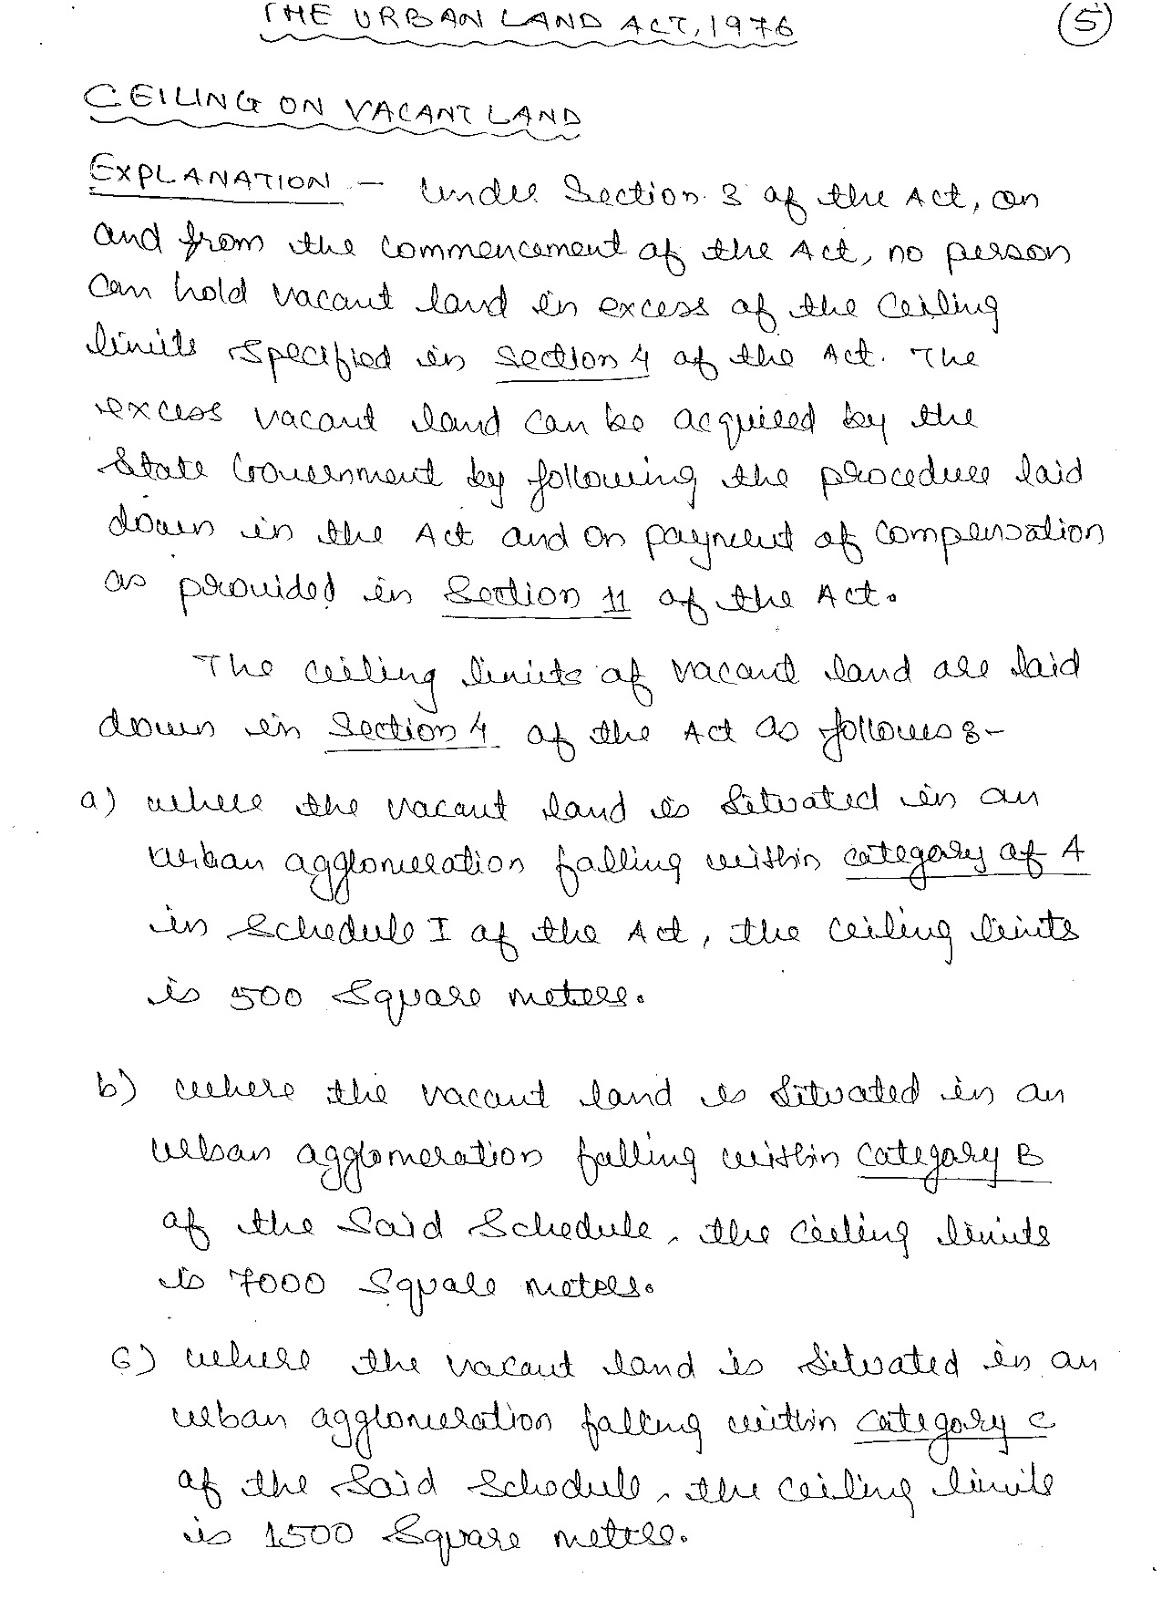 THE URBAN LAND ACT, 1976
5
CEILING ON VACANT LAND
EXPLANATION - Under Section 3 of the Act, on
and from the commencement of the Act, no person
can hold vacant land in excess of the ceiling
limits specified in Section 4 of the Act. The
excess vacant land can be acquired by the
State Government by following the procedure laid
down in the Act and on payment of compensation
as provided in Section 11 of the Act.
The ceiling limits of vacant land are laid
down in Section 4 of the Act as follows:-
a) where the vacant land is situated in an
urban agglomeration falling within category of A
in Schedule I of the Act, the ceiling limits
is 500 Square meters.
b) where the vacant land is situated in an
urban agglomeration falling within category B
of the said Schedule, the ceiling limits
is 7000 Square meters.
c) where the vacant land is situated in an
urban agglomeration falling within category C
of the said Schedule, the ceiling limits
is 1500 Square meters.